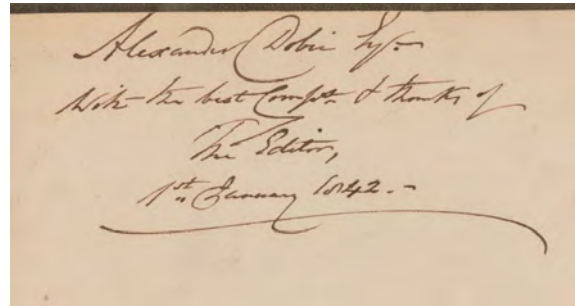 Alexander Dobie Esqr
With the best Compts & thanks of
The Editor,
1st January 1842.-